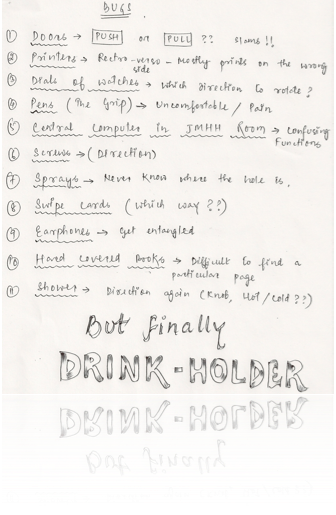 BUGS
① Doors → PUSH or PULL ?? slams !!
② Printers → Rectro-verso - Mostly prints on the wrong
side
③ Dials of watches → which direction to rotate ?
④ Pens (The Grip) → Uncomfortable / Pain
⑤ Central Computer in JMHH Room → confusing
Functions
⑥ Screws → (Direction)
⑦ Sprays → Never know where the hole is.
⑧ Swipe cards (which way ??)
⑨ Earphones → get entangled
⑩ Hard covered Books → Difficult to find a
particular page
⑪ Shower → Direction again (Knob, Hot/Cold ??)
But finally
DRINK-HOLDER